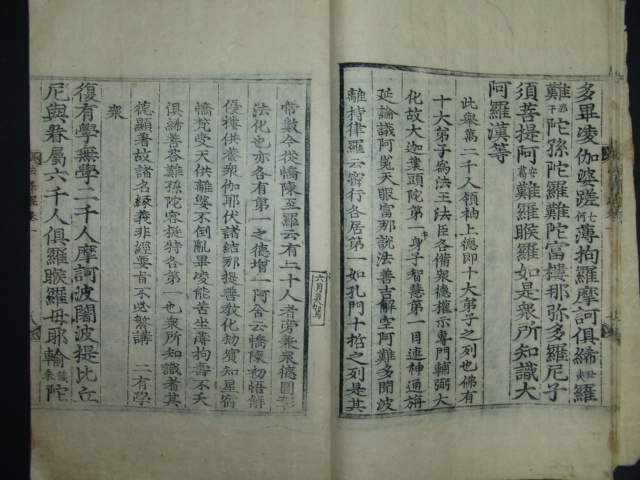 多畢陵伽婆蹉七何薄拘羅摩訶俱絺丑夷羅
難陀孫陀羅難陀富樓那弥多羅尼子
須菩提阿難羅睺羅如是衆所知識大
阿羅漢等
此擧萬二千人領袖上德即十大弟子之列也佛有
十大弟子為法王法臣各備衆德權示專門輔弼大
化故大迦葉頭陀第一身子智慧第一目連神通旃
延論議阿㝹天眼富那說法善吉解空阿難多聞波
離持律羅云密行各居第一如孔門十哲之列是其
常數今從憍陳至羅云有二十人者旁兼衆德圓彰
法化也亦各有第一之德增一阿含云憍陳初悟解
優樓供養衆伽耶伏諸結那提善教化劫賓知星宿
憍梵受天供離婆不倒亂畢陵能苦坐薄拘壽不夭
俱絺善答難孫陀容挺特各第一也衆所知識者其
德顯著故諸名緣義非經要肯不必繁講 二有學
衆
復有學無學二千人摩訶波闍波提比丘
尼與眷屬六千人俱羅睺羅母耶輸陀